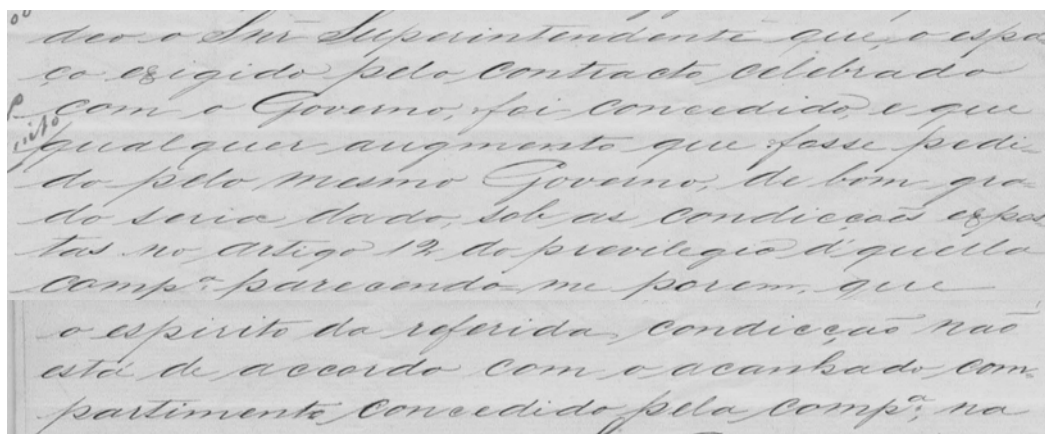 deo o Snr Superintendente que, o espa-
ço exigido pelo contracto celebrado
com o Governo, foi concedido, e que
qualquer augmento que fosse pedi-
do pelo mesmo Governo, de bom gra-
do seria dado, sob as condicções expos-
tas no artigo 12 do previlegio d'aquella
Compª parecendo me porem, que
o espirito da referida condicção não
está de accordo com o acanhado com-
partimento concedido pela compª, na